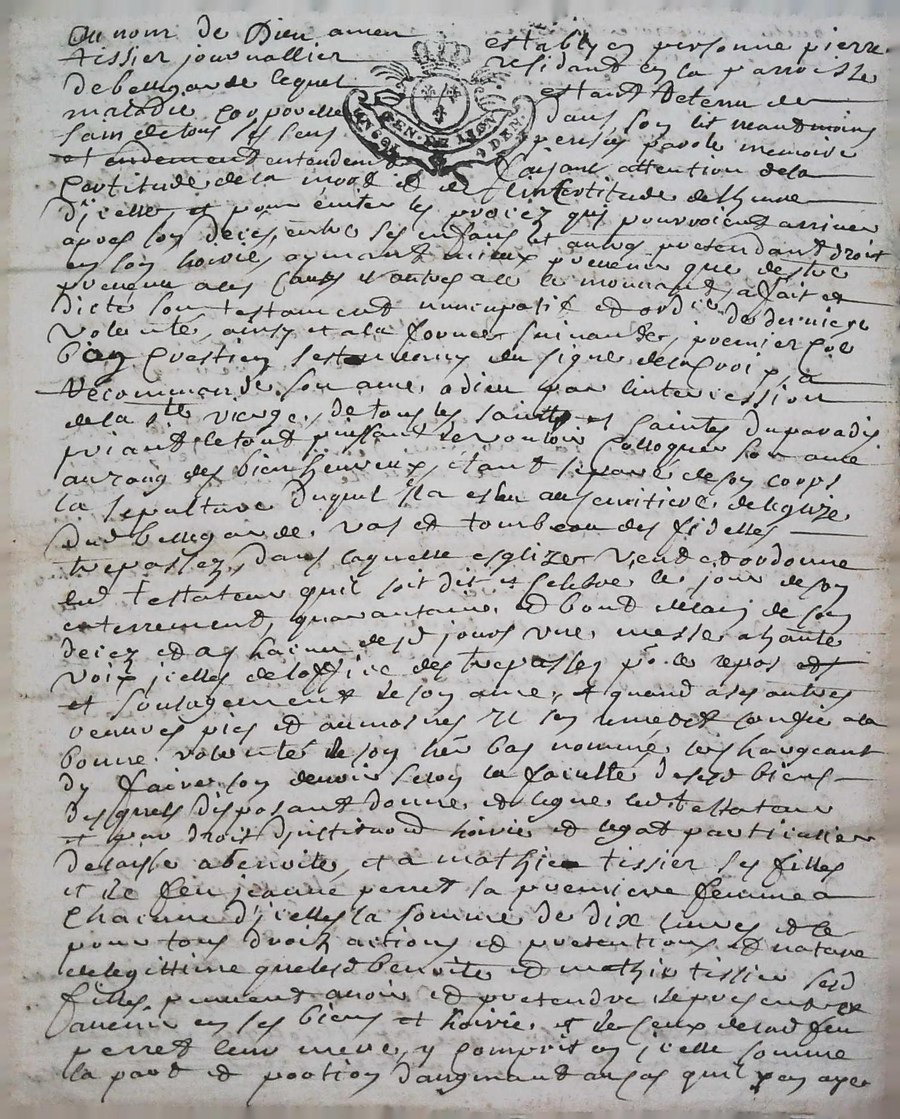 Au nom de Dieu amen establyen personne pierre
tissier journallier residant en la parroisse
de bellegarde lequel estant detenu de
maladie corporelle dans son lit neantmoins
sain de tous ses sens pensées parole memoire
et endement entendem faisant attention de la
certitude de la mort et de l'incertitude de lheure
dicelle et pour éviter les procez qui pourroient arriver
apres son deces entre ses enfans et autres pretendant droit
en son hoirie aymant mieux prevenir que destre
prevenu a ces causes et autres a le mouvant, a fait et
dicté son testament nuncupatif et ordce de derniere
volonté, ainsy et a la forme suivante, premier co
bon crestien sest du signe de la croix, a
recommandé son ame, a dieu par lintercession
de la ste vierge, de tous les saints et saintes du paradis
priant le tout puissant de vouloir colloquer son ame
au rang des bienheureux, étant separé de son corps
la sepulture duquel il a eslu au semitiere de leglize
dud bellegarde, vas et tombeau des fidelles
trepassez, dans laquelle esglize veut et ordonne
led testateur quil soit dit et celebré le jour de son
enterrement, quarantaine, et bout de lan de son
decez et a chacun desd jours une messe a haute
voix jcelles de loffice des trepasses pr le repos et
et soulagement de son ame, et quand a ses autres
oeuvres pies et aumosnes il sen remet confie a la
bonne volonté de son hér bas nommé, les chargeant
dy faire son devoir selon la faculté de sesd biens
desquels disposant donne et legue led testateur
et par droit dinstitution hoirie et legat particulier
delaisse a benoite, et a mathie tissier ses filles
et de feu jeanne perret sa premiere femme a
chacune dicelles la somme de dix livres et ce
pour tous droits actions et pretentions et nature
de legittime que lesd benoite et mathie tissier sesd
filles peuvent avoir et pretendre de present et
avenir en ses biens et hoirie, et de ceux de lad feu
perret leur mere, y compris en jcelle somme
la part et portion daugmant au cas quil y en aye
GEN. DE LION
9 DEN.